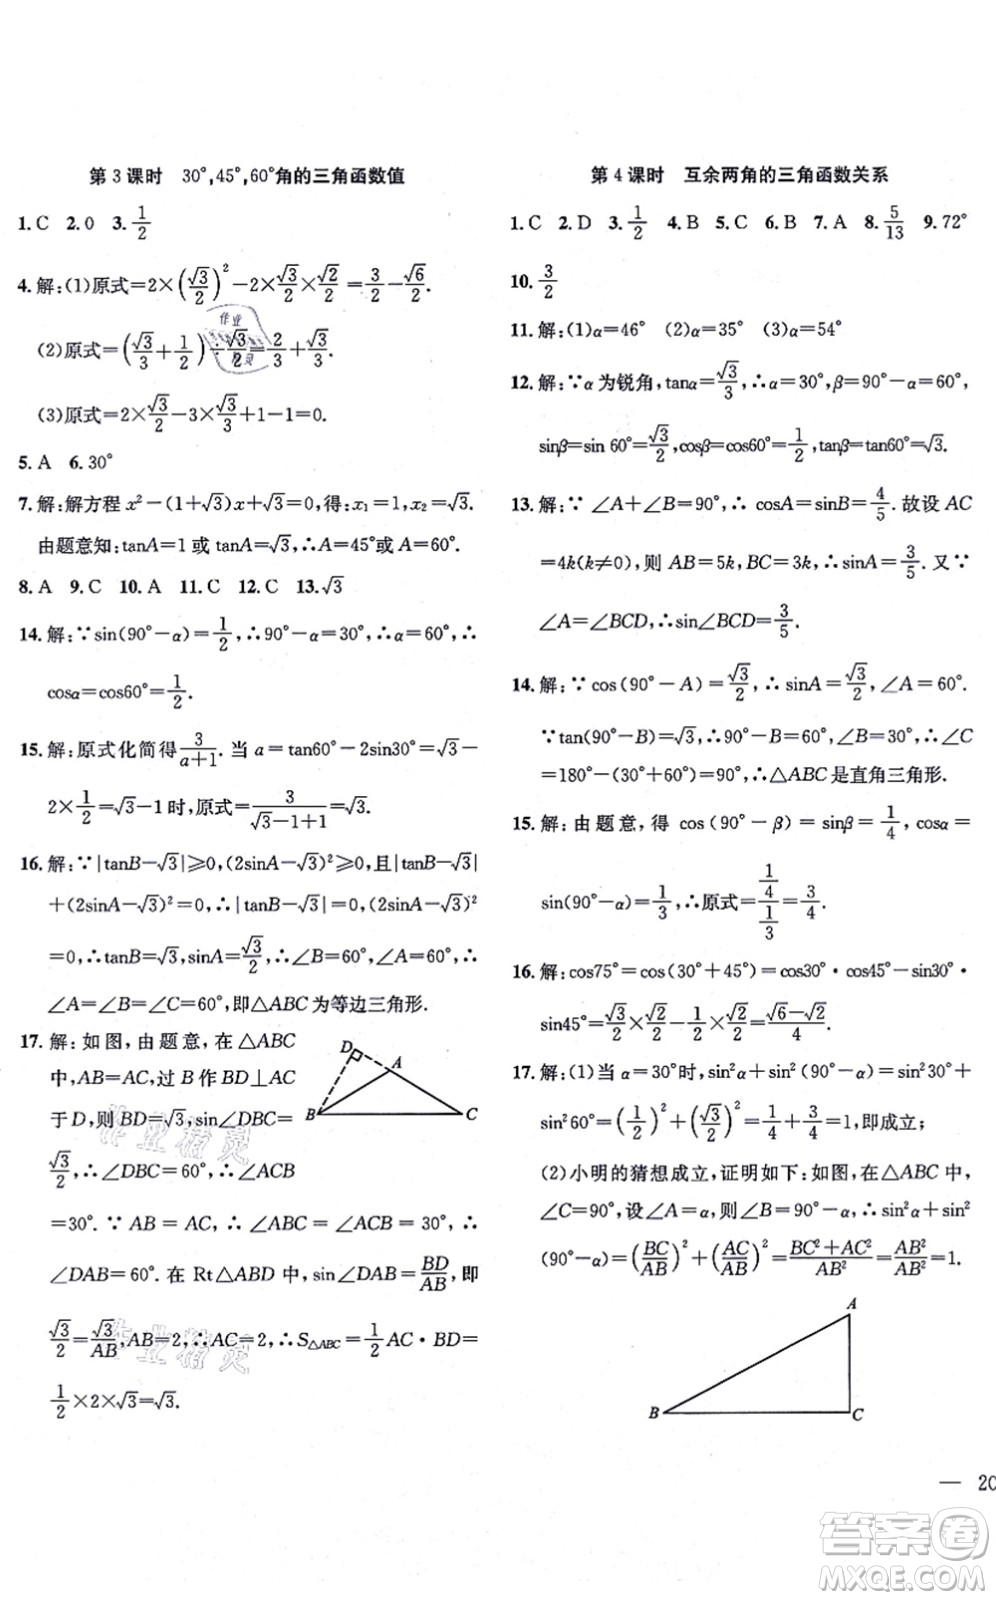 第3课时 30°,45°,60°角的三角函数值
1.C 2.0 3.1/2
4.解:(1)原式=2×(√3/2)²-2×√3/2×√2/2=3/2-√6/2.
(2)原式=(√3/3+1/2)÷√3/2=2/3+√3/3.
(3)原式=2×√3/2-3×√3/3+1-1=0.
5.A 6.30°
7.解:解方程x²-(1+√3)x+√3=0,得:x₁=1,x₂=√3.
由题意知:tanA=1或tanA=√3,∴A=45°或A=60°.
8.A 9.C 10.A 11.C 12.C 13.√3
14.解:∵sin(90°-α)=1/2,∴90°-α=30°,∴α=60°,∴
cosα=cos60°=1/2.
15.解:原式化简得3/(a+1).当a=tan60°-2sin30°=√3-
2×1/2=√3-1时,原式=3/(√3-1+1)=√3.
16.解:∵|tanB-√3|≥0,(2sinA-√3)²≥0,且|tanB-√3|
+(2sinA-√3)²=0,∴|tanB-√3|=0,(2sinA-√3)²
=0,∴tanB=√3,sinA=√3/2,∴∠B=60°,∠A=60°,∴
∠A=∠B=∠C=60°,即△ABC为等边三角形.
17.解:如图,由题意,在△ABC
中,AB=AC,过B作BD⊥AC
于D,则BD=√3,sin∠DBC=
√3/2,∴∠DBC=60°,∴∠ACB
=30°.∵AB=AC,∴∠ABC=∠ACB=30°,∴
∠DAB=60°.在Rt△ABD中,sin∠DAB=BD/AB,即
√3/2=√3/AB,AB=2,∴AC=2,∴S△ABC=1/2AC·BD=
1/2×2×√3=√3.
D
A
B
C
第4课时 互余两角的三角函数关系
1.C 2.D 3.1/2 4.C 5.C 6.B 7.A 8.5/13 9.72°
10.3/2
11.解:(1)α=46° (2)α=35° (3)α=54°
12.解:∵α为锐角,tanα=√3/3,∴α=30°,β=90°-α=60°,
sinβ=sin 60°=√3/2,cosβ=cos60°=1/2,tanβ=tan60°=√3.
13.解:∵∠A+∠B=90°,∴cosA=sinB=4/5.故设AC
=4k(k≠0),则AB=5k,BC=3k,∴sinA=3/5.又∵
∠A=∠BCD,∴sin∠BCD=3/5.
14.解:∵cos(90°-A)=√3/2,∴sinA=√3/2,∠A=60°.
∵tan(90°-B)=√3,∴90°-B=60°,∠B=30°,∴∠C
=180°-(30°+60°)=90°,∴△ABC是直角三角形.
15.解:由题意,得cos(90°-β)=sinβ=1/4,cosα=
sin(90°-α)=1/3,∴原式=(1/4)/(1/3)=3/4.
16.解:cos75°=cos(30°+45°)=cos30°·cos45°-sin30°·
sin45°=√3/2×√2/2-1/2×√2/2=(√6-√2)/4.
17.解:(1)当α=30°时,sin²α+sin²(90°-α)=sin²30°+
sin²60°=(1/2)²+(√3/2)²=1/4+3/4=1,即成立;
(2)小明的猜想成立,证明如下:如图,在△ABC中,
∠C=90°,设∠A=α,则∠B=90°-α,∴sin²α+sin²
(90°-α)=(BC/AB)²+(AC/AB)²=(BC²+AC²)/AB²=AB²/AB²=1.
A
B
C
— 20
答案圈
MXQE.COM
作业精灵
作业精灵